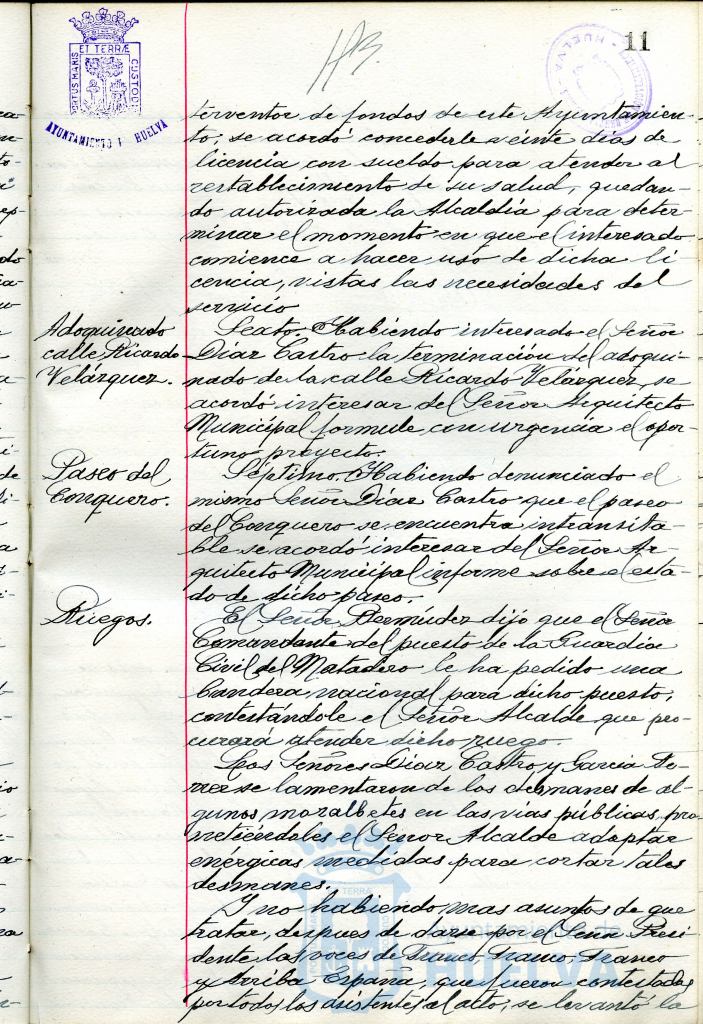 11
PORTUS MARIS ET TERRÆ CUSTODIA
AYUNTAMIENTO DE HUELVA
HUELVA
terventor de fondos de este Ayuntamien-
to; se acordó concederle veinte días de
licencia con sueldo para atender al
restablecimiento de su salud, quedan-
do autorizada la Alcaldía para deter-
minar el momento en que el interesado
comience a hacer uso de dicha li
cencia, vistas las necesidades del
servicio
Adoquinado
calle Ricardo
Velázquez.
Sexto. Habiendo interesado el Señor
Díaz Castro la terminación del adoqui-
nado de la calle Ricardo Velázquez, se
acordó interesar del Señor Arquitecto
Municipal formule con urgencia el opor-
tuno proyecto.
Paseo del
Conquero.
Séptimo. Habiendo denunciado el
mismo Señor Díaz Castro que el paseo
del Conquero se encuentra intransita-
ble se acordó interesar del Señor Ar-
quitecto Municipal informe sobre el esta-
do de dicho paseo.
Ruegos.
El Señor Bermúdez dijo que el Señor
Comandante del puesto de la Guardia
Civil del Matadero le ha pedido una
bandera nacional para dicho puesto,
contestándole el Señor Alcalde que pro-
curará atender dicho ruego.
Los Señores Díaz Castro y García
se lamentaron de los desmanes de al-
gunos mozalbetes en las vías públicas, pro-
metiéndoles el Señor Alcalde adoptar
enérgicas medidas para cortar tales
desmanes.
Y no habiendo mas asuntos de que
tratar, despues de darse por el Señor Presi-
dente las voces de Franco, Franco, Franco
y Arriba España, que fueron contestadas
por todos los asistentes al acto, se levantó la
HUELVA